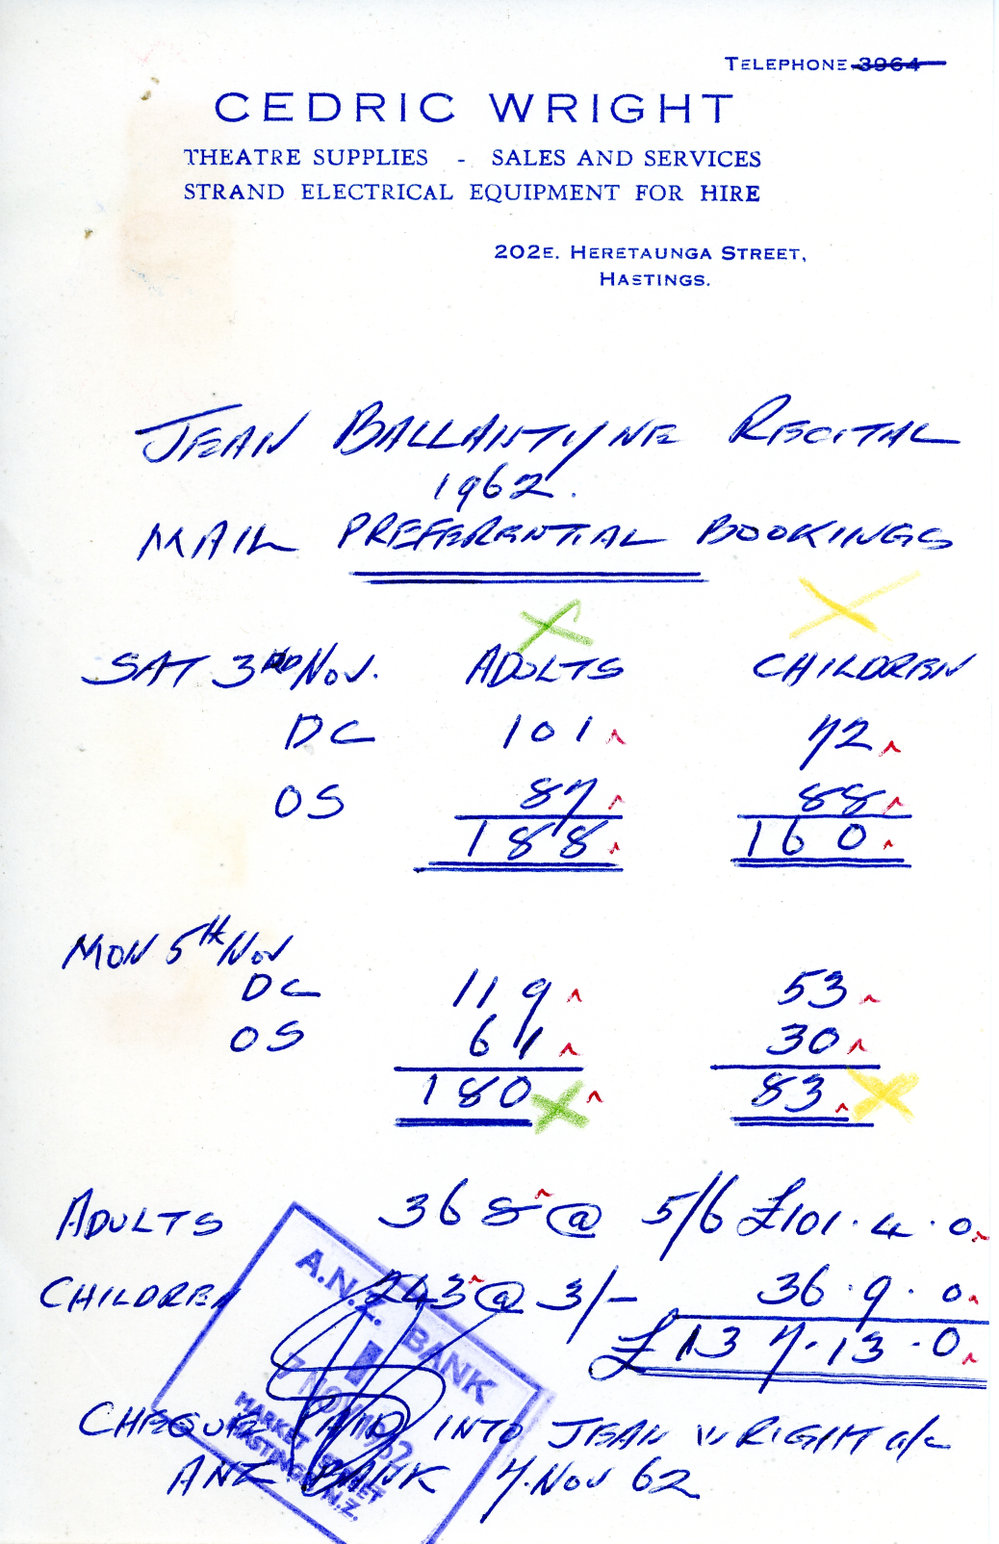 TELEPHONE 3964
CEDRIC WRIGHT
THEATRE SUPPLIES - SALES AND SERVICES
STRAND ELECTRICAL EQUIPMENT FOR HIRE
202E. HERETAUNGA STREET,
HASTINGS.
JEAN BALLANTYNE RECITAL
1962.
MAIL PREFERENTIAL BOOKINGS
SAT 3RD NOV. ADULTS CHILDREN
DC 101 72
OS 87 88
188 160
MON 5TH NOV
DC 119 53
OS 61 30
180 83
ADULTS 368 @ 5/6 £101.4.0
CHILDREN 243 @ 3/- 36.9.0
£137.13.0
A.N.Z. BANK
7 NOV 1962
MARKET STREET
HASTINGS N.Z.
CHEQUE PAID INTO JEAN WRIGHT a/c
ANZ BANK 7. NOV 62